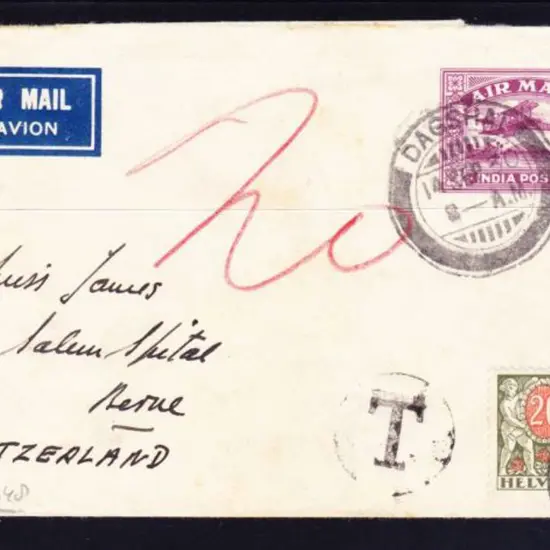 R MAIL
AVION
AIR MA
INDIA POS
DAGSHAI
8 — A.M
20
uiss James
Salem Spital
Berne
TZERLAND
T
20
HELV